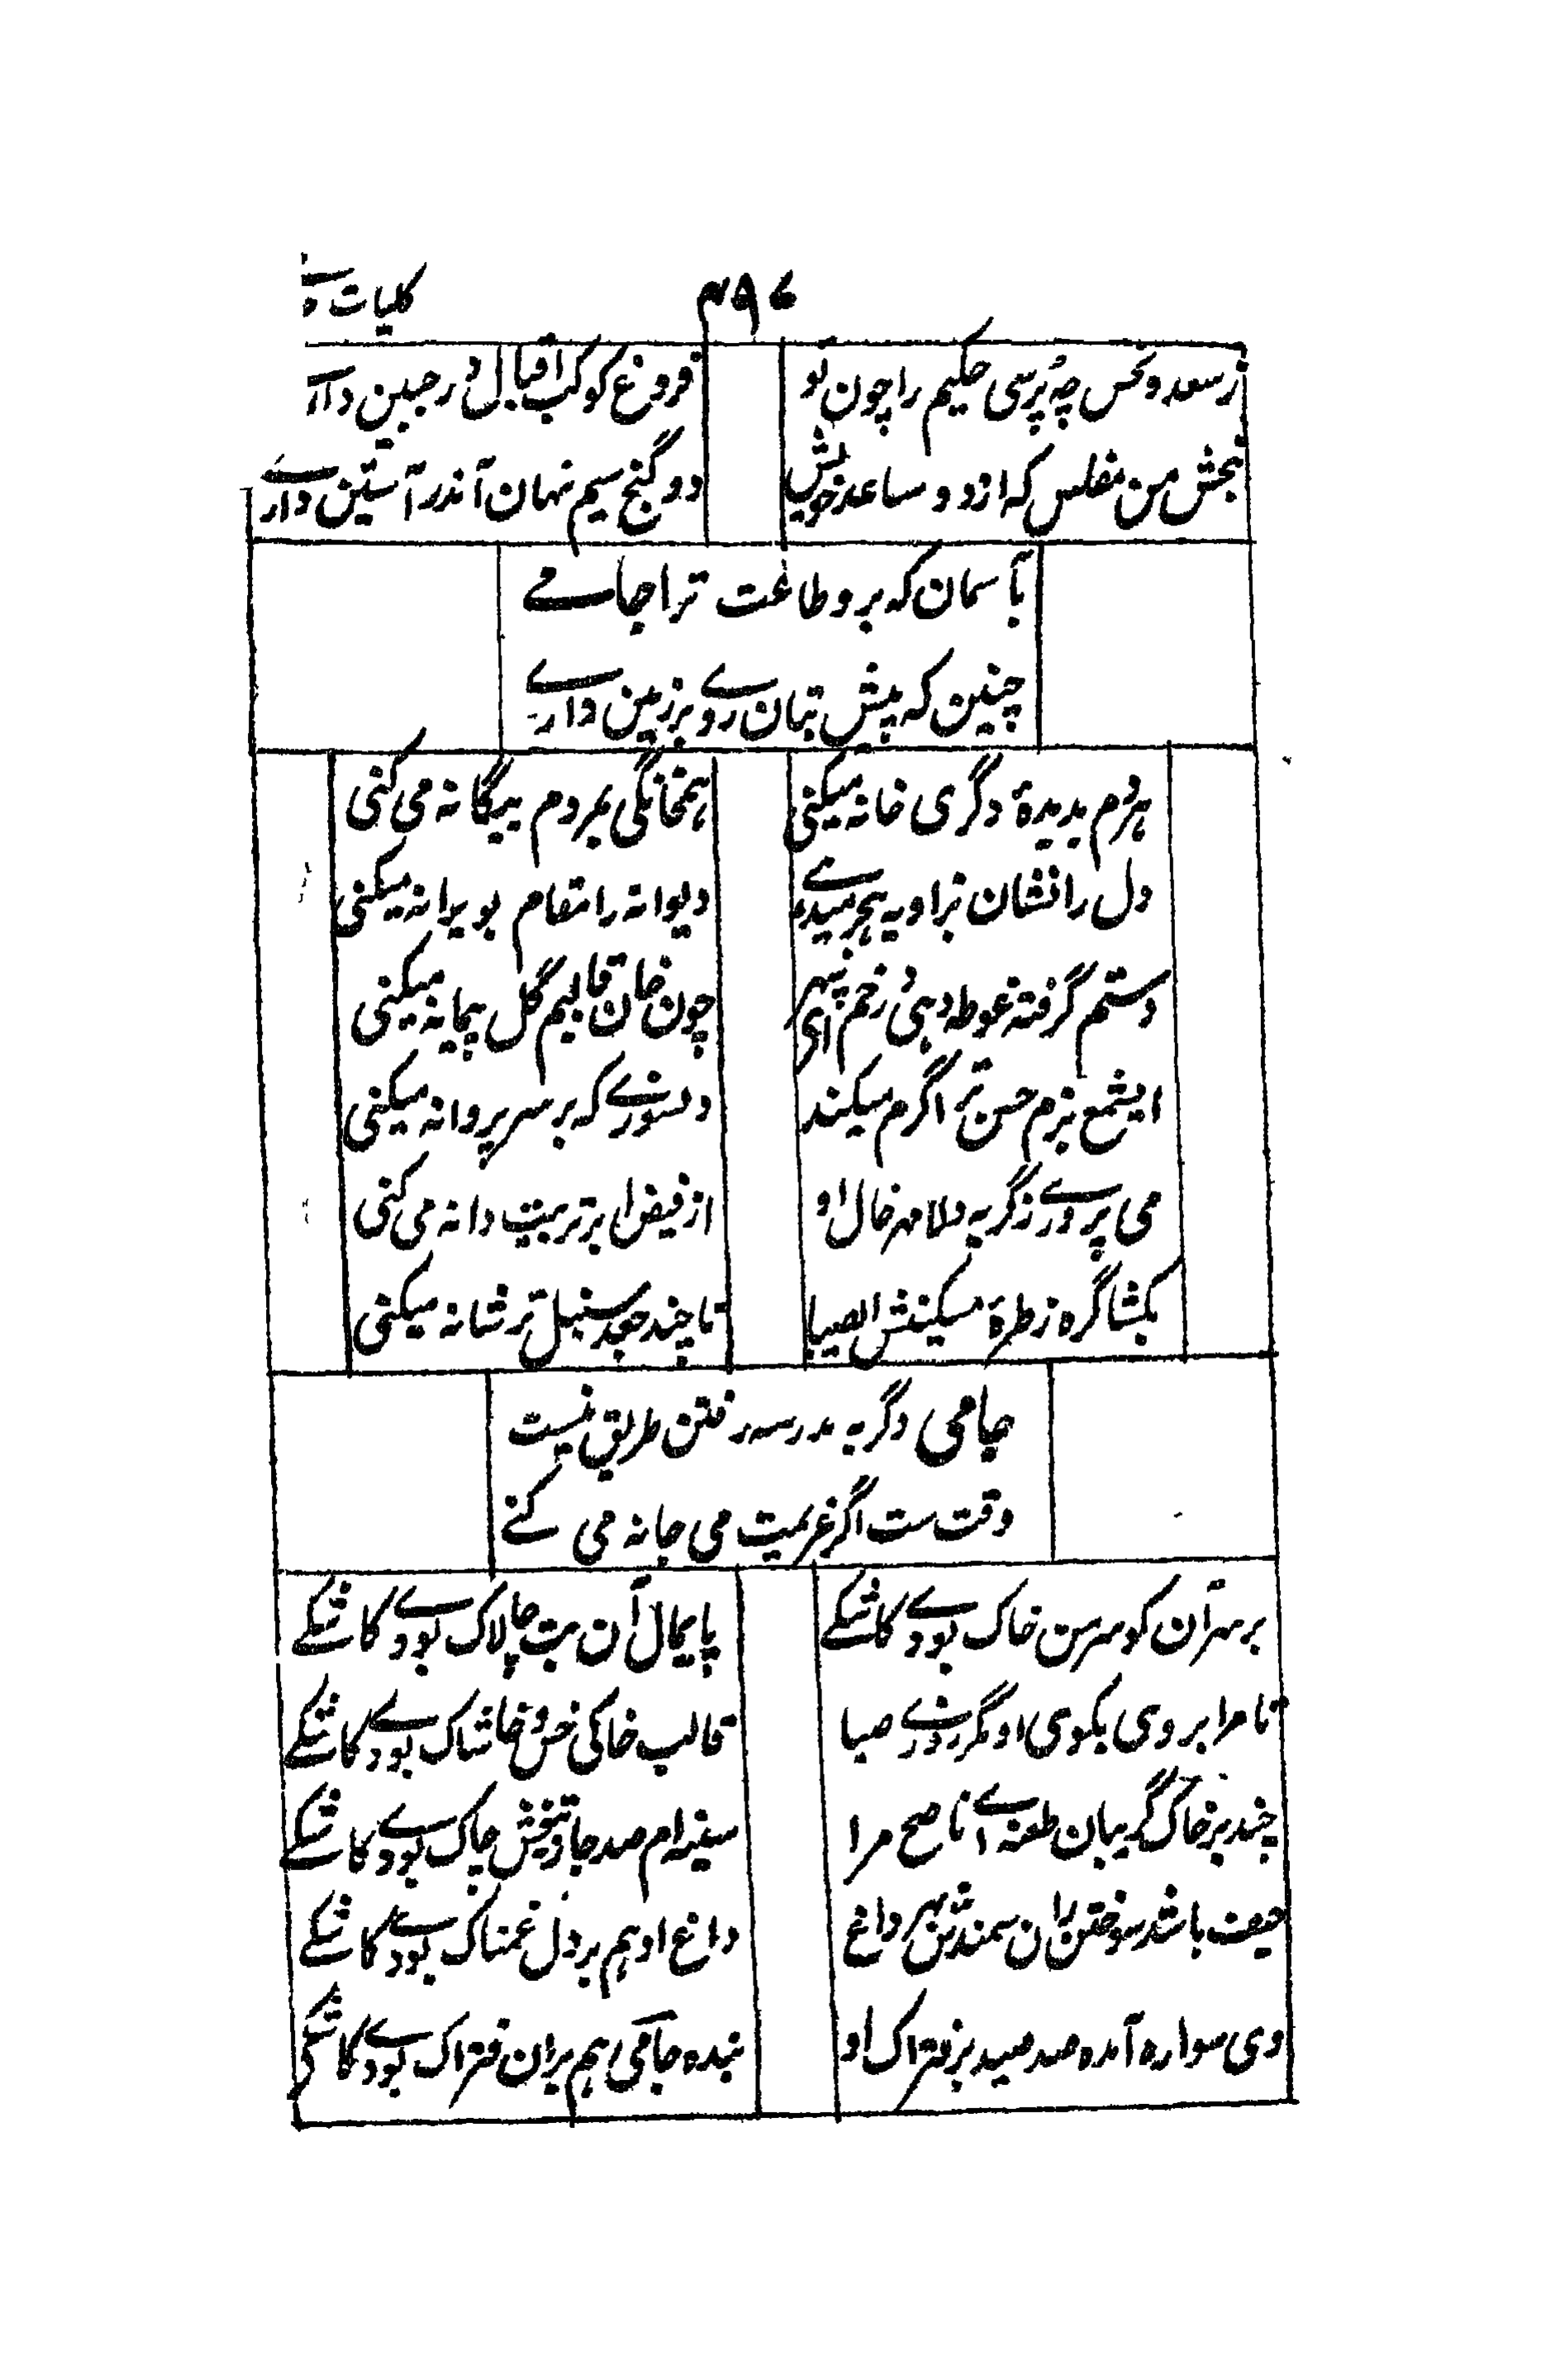 ۴۹۷
کلیات
ز سعد و نحس چه پرسی حکیم را چون تو
فروغ کوکب اقبال در جبین داری
ببخش من مفلس که از دو ساعد خویش
دو گنج سیم نهان اندر آستین داری
بآسمان که برو طاعت ترا جامی
چنین که پیش بتان روی بر زمین داری
هر دم بدیدهٔ دگری خانه میکنی
همخانگی بمردم بیگانه می کنی
دل را نشان بزاویه هجر میدهی
دیوانه را مقام بویرانه میکنی
دستم گرفته غوطه دهی در خم سپهر
چون خان قالبم گل پیمانه میکنی
ای شمع بزم حسن ترا گرم میکند
دلسوزی که بر سر پروانه میکنی
می پروری ز گریه دلا مهر خال او
از فیض ابر تربیت دانه می کنی
بکشا گره ز طرهٔ مسکینش ای صبا
تا چند جعد سنبل تر شانه میکنی
جامی دگر به مدرسه رفتن طریق نیست
وقت ست اگر عزیمت می جانه می کنی
بر سر آن کو سر من خاک بودی کاشکی
پایمال آن بت چالاک بودی کاشکی
تا مرا بر وی بکوی او مگر روزی صبا
قالب خاکی خس و خاشاک بودی کاشکی
چند بر خاک گریبان طعنه ای ناصح مرا
سینه ام صد جا ز تیغش چاک بودی کاشکی
حیف باشد سوختن ران سمندش بهر داغ
داغ او هم بر دل غمناک بودی کاشکی
وی سواره آمده صد صید بر فتراک او
بنده جامی هم بران فتراک بودی کاشکی